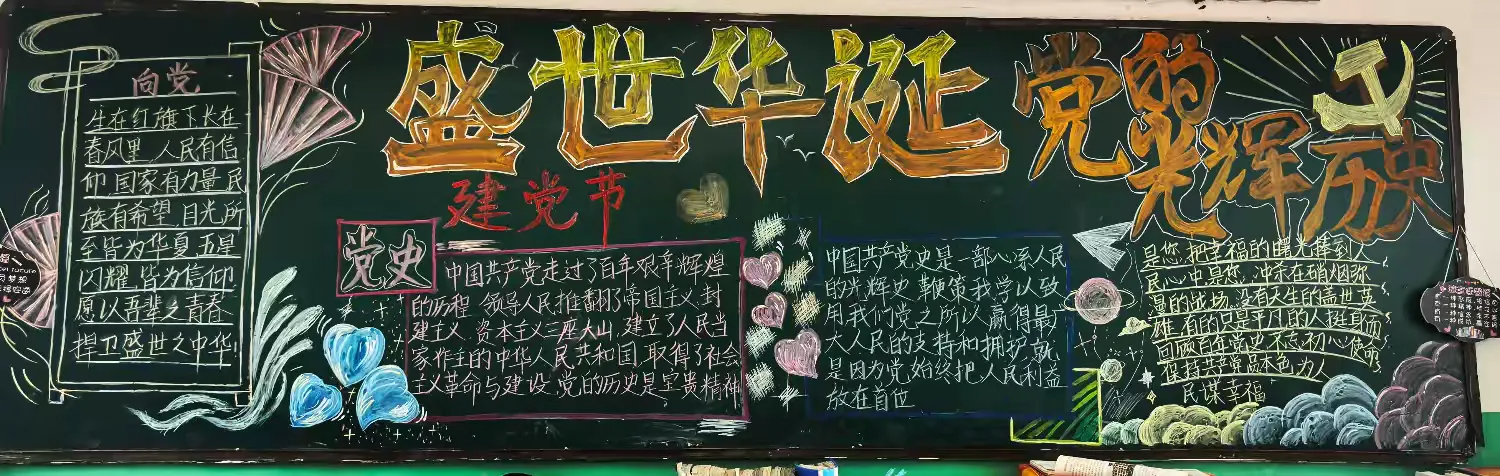 盛世华诞
党的光辉历史
建党节
向党
生在红旗下长在
春风里,人民有信
仰,国家有力量,民
族有希望,目光所
至皆为华夏,五星
闪耀,皆为信仰
愿以吾辈之青春
捍卫盛世之中华
党史
中国共产党走过了百年艰辛辉煌
的历程,领导人民推翻了帝国主义、封
建主义、资本主义三座大山,建立了人民当
家作主的中华人民共和国,取得了社会
主义革命与建设,党的历史是宝贵精神
中国共产党史是一部心系人民
的光辉史,鞭策我学以致
用,我们党之所以赢得最广
大人民的支持和拥护,就
是因为党始终把人民利益
放在首位
是您,把幸福的曙光捧到人
民心中,是您,冲杀在硝烟弥
漫的战场,没有天生的盖世英
雄,有的只是平凡的人挺身而
回顾百年党史,不忘初心使命
保持共产党品本色,为人
民谋幸福